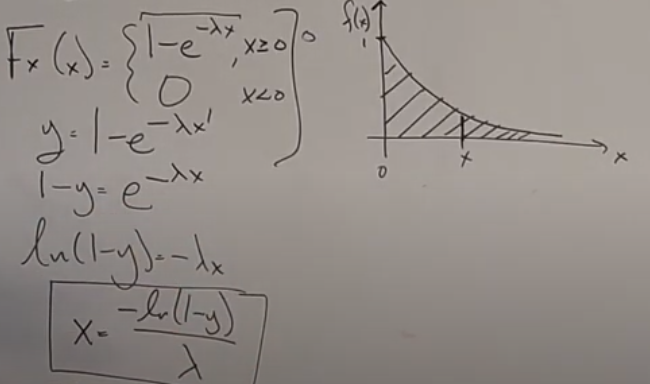 Fx(x)= { 1-e^-λx, x≥0
0 x<0
y=1-e^-λx
1-y=e^-λx
ln(1-y)=-λx
x=-ln(1-y)/λ
f(x)
1
0 x x